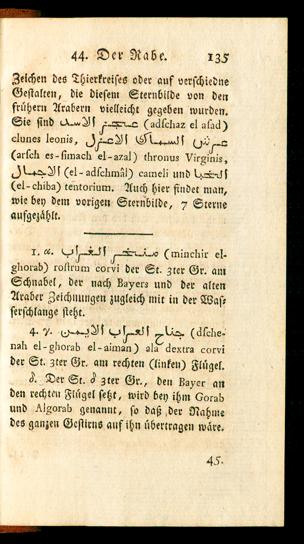 44. Der Rabe. 135
Zeichen des Thierkreises oder auf verschiedne
Gestalten, die diesem Sternbilde von den
frühern Arabern vielleicht gegeben wurden.
Sie sind عجز الاسد (adschaz el asad)
clunes leonis, عرش السماك الاعزل
(arsch es-simach el-azal) thronus Virginis,
الاجمال (el-adschmâl) cameli und الخبا
(el-chiba) tentorium. Auch hier findet man,
wie bey dem vorigen Sternbilde, 7 Sterne
aufgezählt.
1. α. منخر الغراب (minchir el-
ghorab) rostrum corvi der St. 3ter Gr. am
Schnabel, der nach Bayers und der alten
Araber Zeichnungen zugleich mit in der Was-
serschlange steht.
4. γ. جناح الغراب الايمن (dsche-
nah el-ghorab el-aiman) ala dextra corvi
der St. 3ter Gr. am rechten (linken) Flügel.
δ. Der St. δ 3ter Gr., den Bayer an
den rechten Flügel setzt, wird bey ihm Gorab
und Algorab genannt, so daß der Nahme
des ganzen Gestirns auf ihn übertragen wäre.
45.